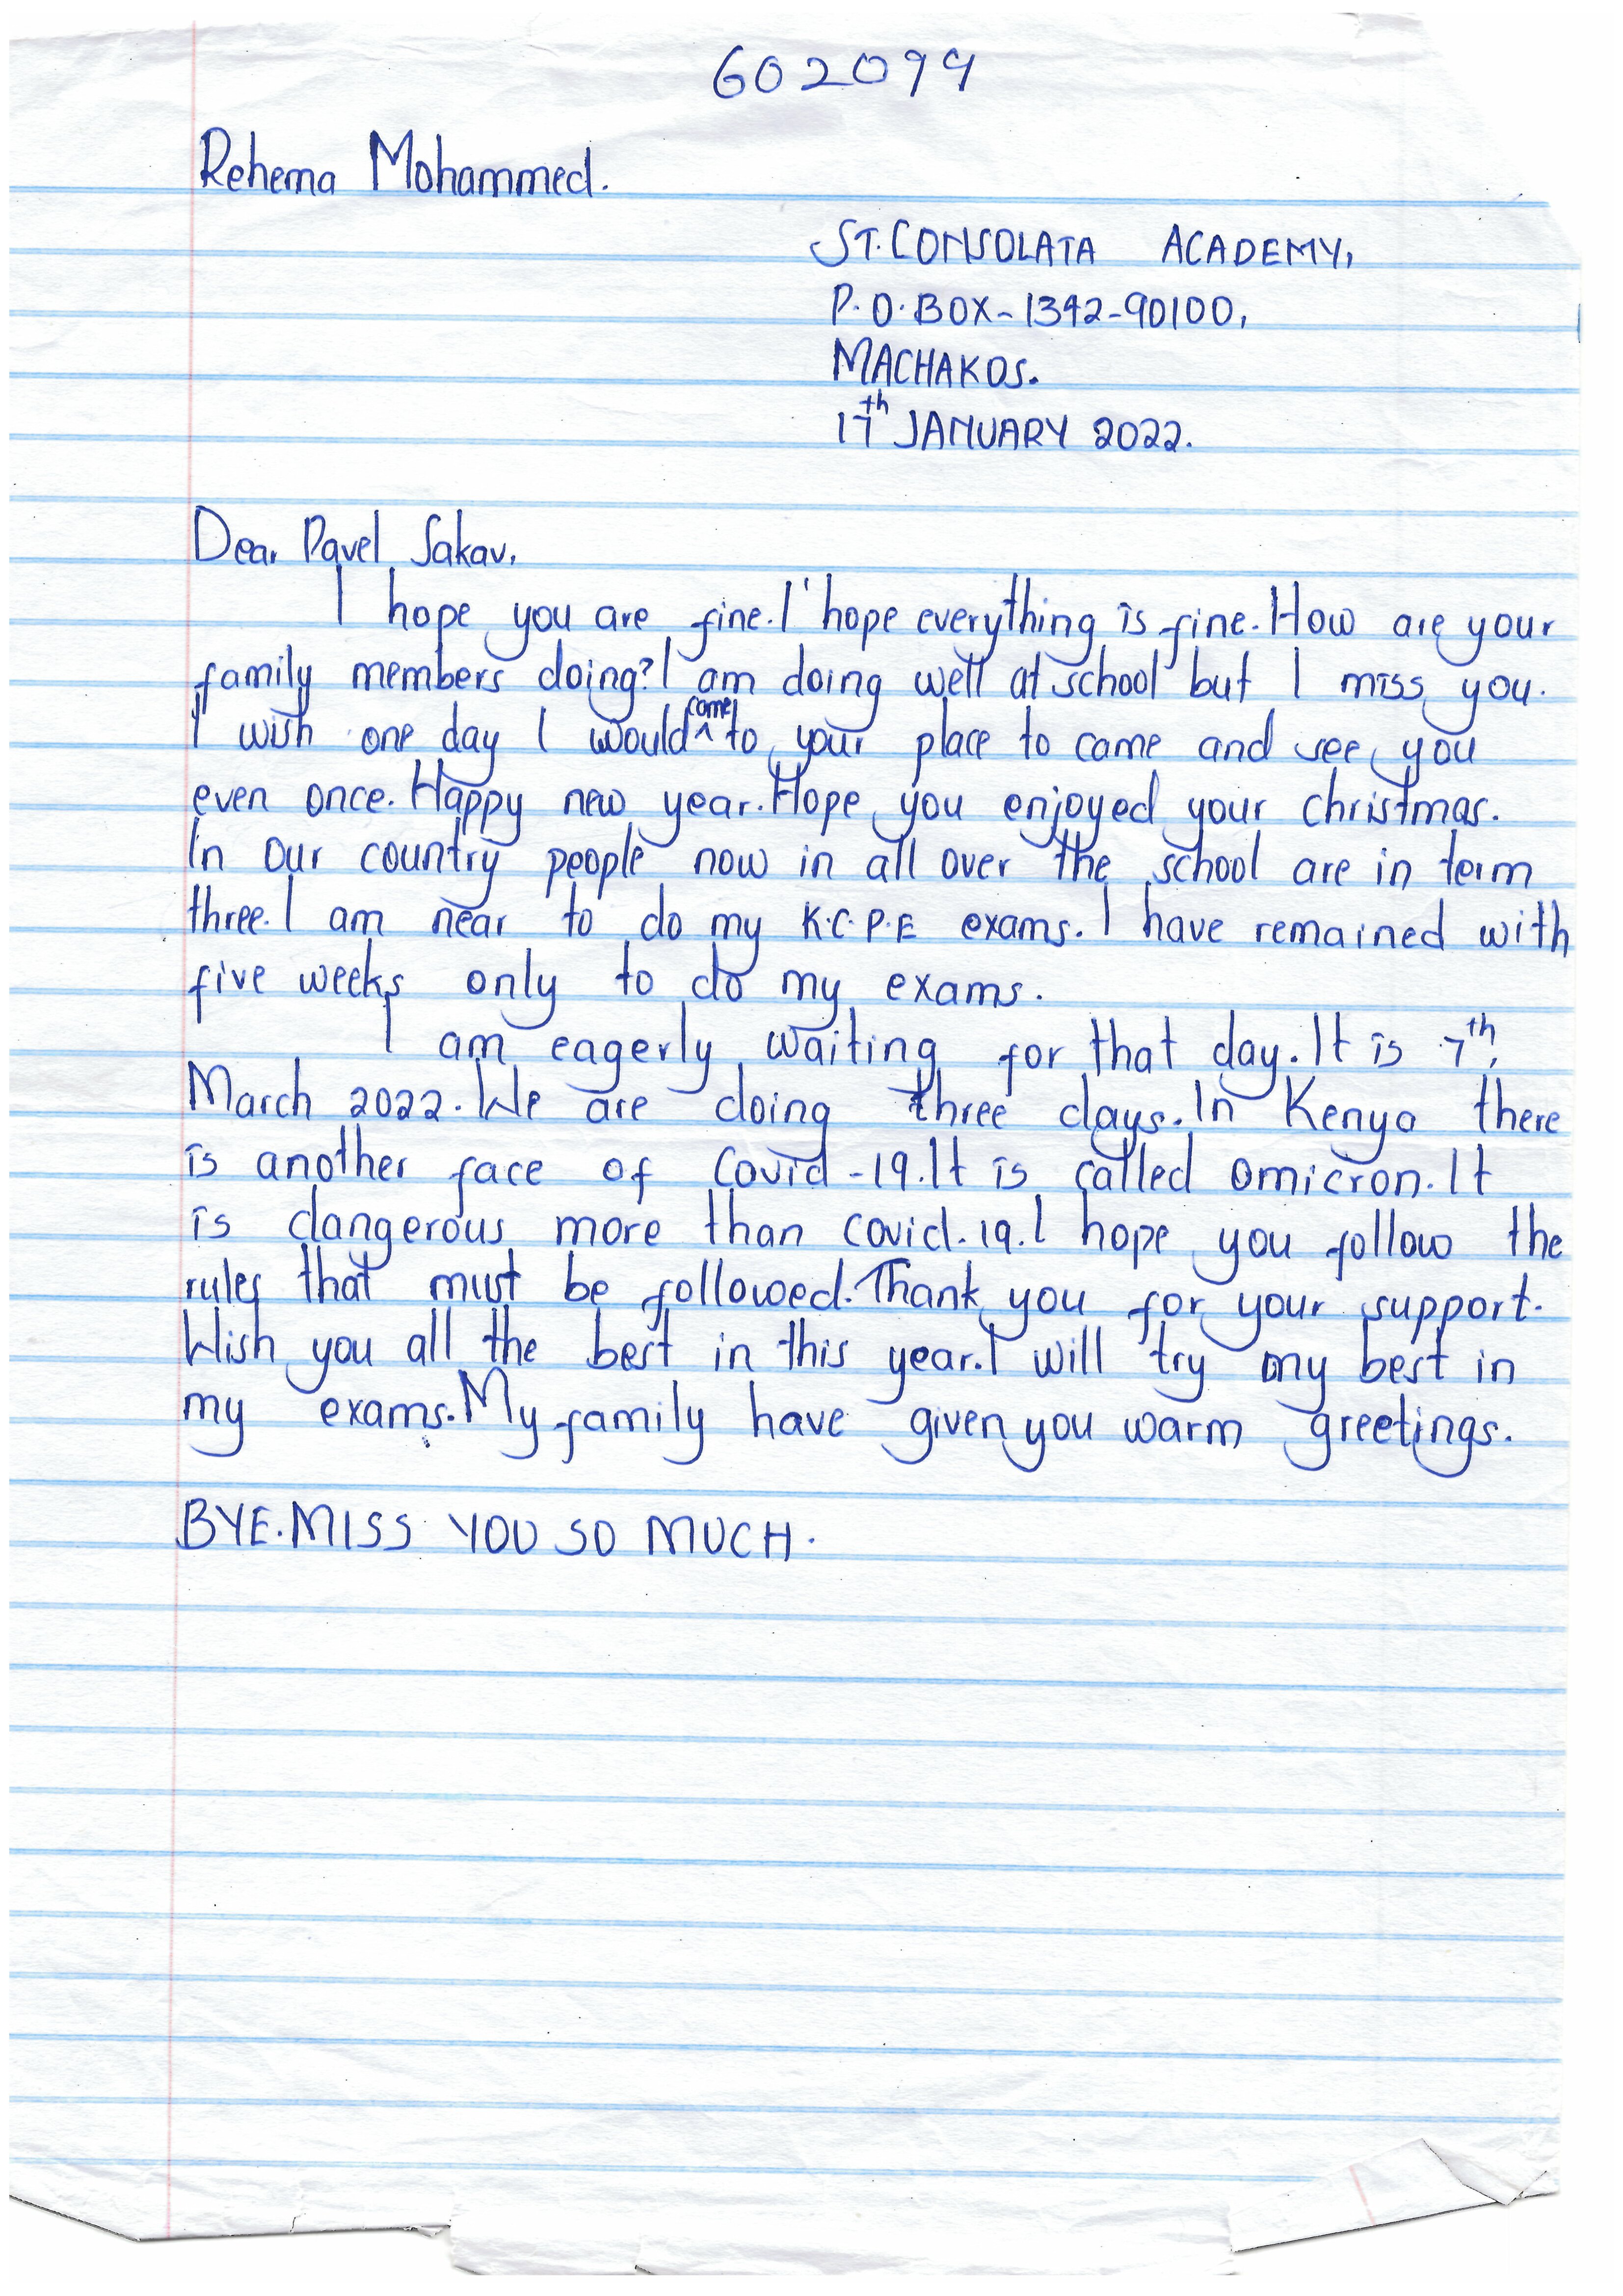 602099
Rehema Mohammed.
ST. CONSOLATA ACADEMY,
P.O.BOX-1342-90100,
MACHAKOS.
17th JANUARY 2022.
Dear Pavel Sakav,
I hope you are fine. I hope everything is fine. How are your
family members doing? I am doing well at school but I miss you.
I wish one day I would come to your place to came and see you
even once. Happy new year. Hope you enjoyed your christmas.
In our country people now in all over the school are in term
three. I am near to do my K.C.P.E exams. I have remained with
five weeks only to do my exams.
I am eagerly waiting for that day. It is 7th,
March 2022. We are doing three days. In Kenya there
is another face of Covid-19. It is called omicron. It
is dangerous more than covid.19. I hope you follow the
rules that must be followed. Thank you for your support.
Wish you all the best in this year. I will try my best in
my exams. My family have given you warm greetings.
BYE. MISS YOU SO MUCH.